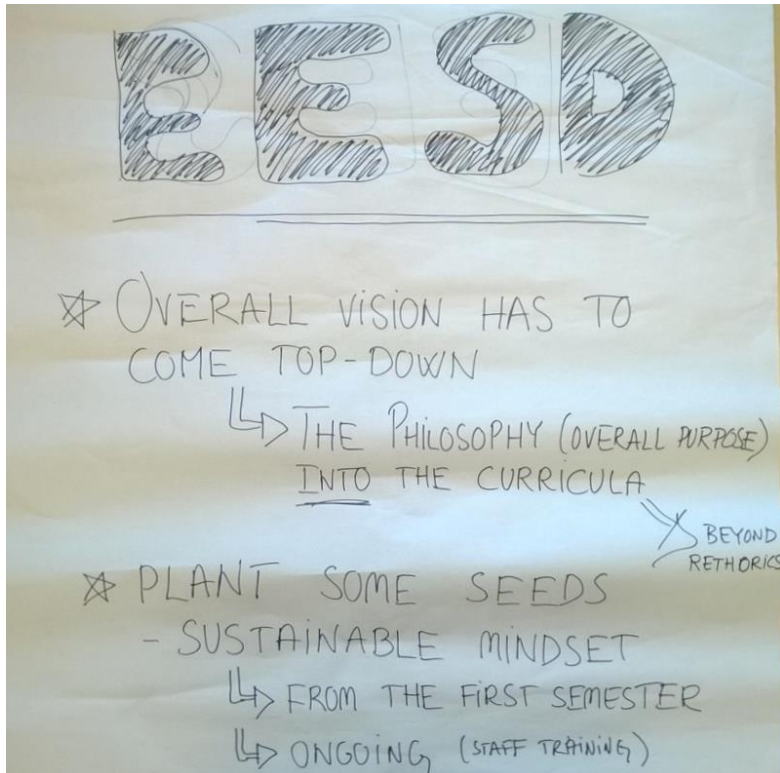 EESD
☆ OVERALL VISION HAS TO
COME TOP-DOWN
↳ THE PHILOSOPHY (OVERALL PURPOSE)
INTO THE CURRICULA
↘ BEYOND
RETHORICS
☆ PLANT SOME SEEDS
- SUSTAINABLE MINDSET
↳ FROM THE FIRST SEMESTER
↳ ONGOING (STAFF TRAINING)